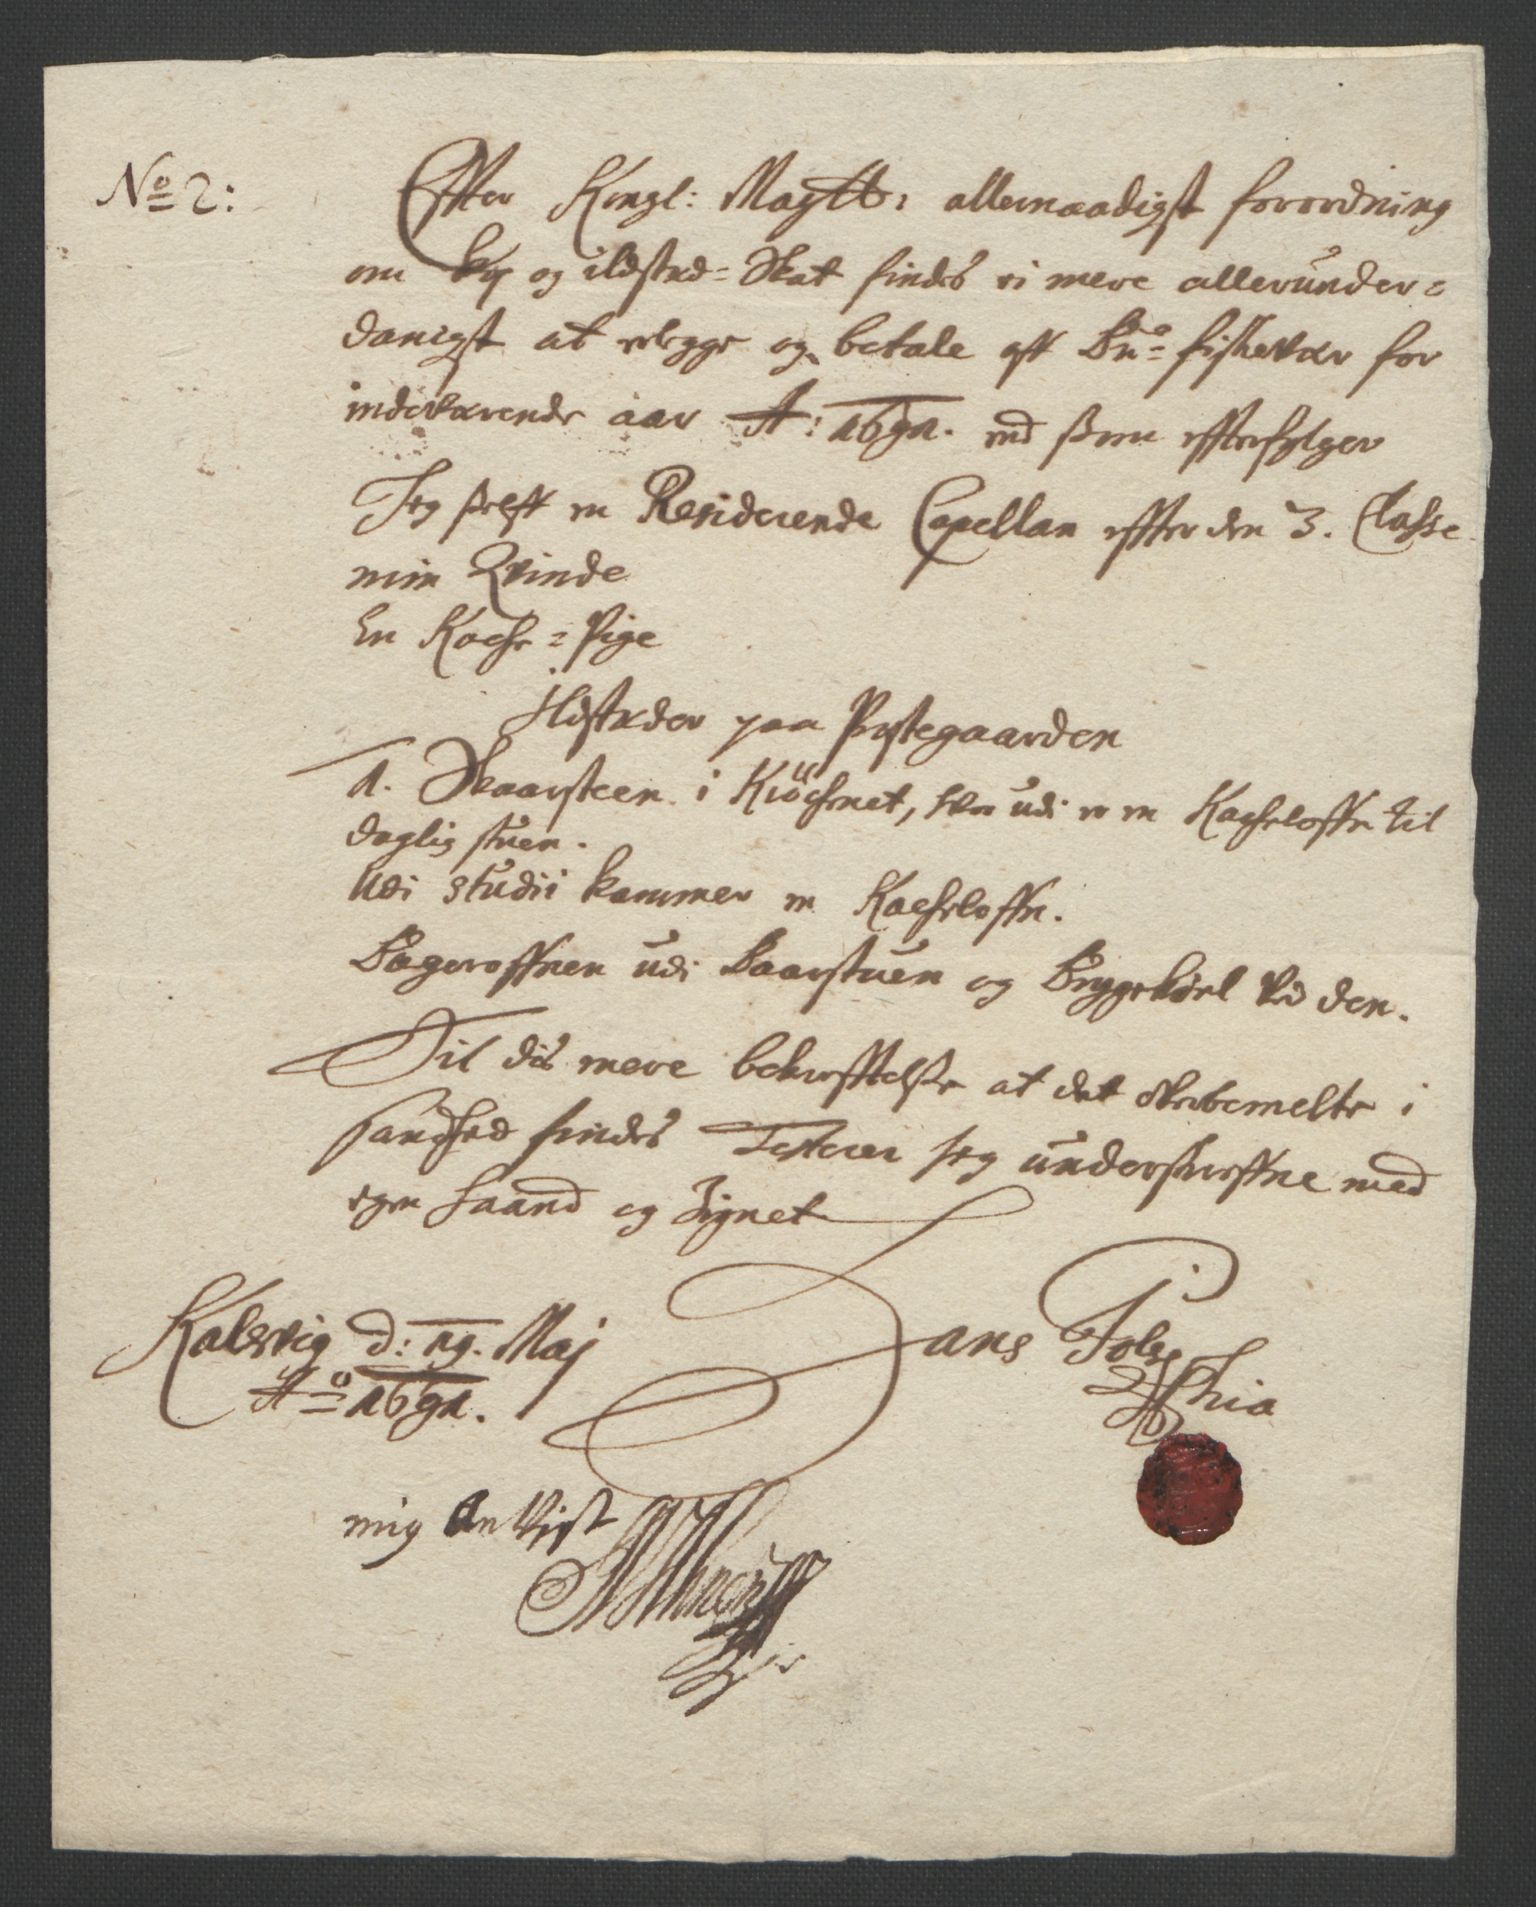 No 2:
Effter Kongl: Maytts: allernaadigst forordning
om kop og ildsted= Skat findes ei mere allerunder=
danigst at erlegge og betale aff Buo= fiskevær for
inderværende aar A: 1691. end som effterfølger
Jeg selff en Residerende Capellan effter den 3. Classe
min Qvinde
En Koche= Pige
Ildsteder paa Præstegaarden
1. Skaarsteen i Kiöchenet, udi er en Kacheloffn til
daglig stuen.
Udi studii kammer en Kacheloffn.
Bageroffnen udi Baarstuen og Bryggekiæl ved den.
Til dis mere bekrefftelse at det skrebemelte i
sandhed findes Testerer jeg underskreffne med
egen haand og Zignet
Kalsvig d: 19. Maj
Ao 1691.
Hans
mig Anvist